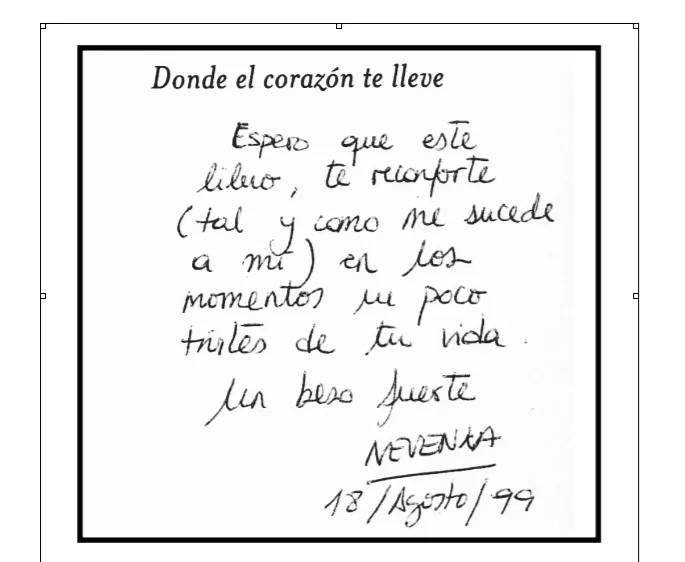 Donde el corazón te lleve
Espero que este
libro, te reconforte
(tal y como me sucede
a mi) en los
momentos un poco
tristes de tu vida.
Un beso fuerte
NEVENKA
18/Agosto/99